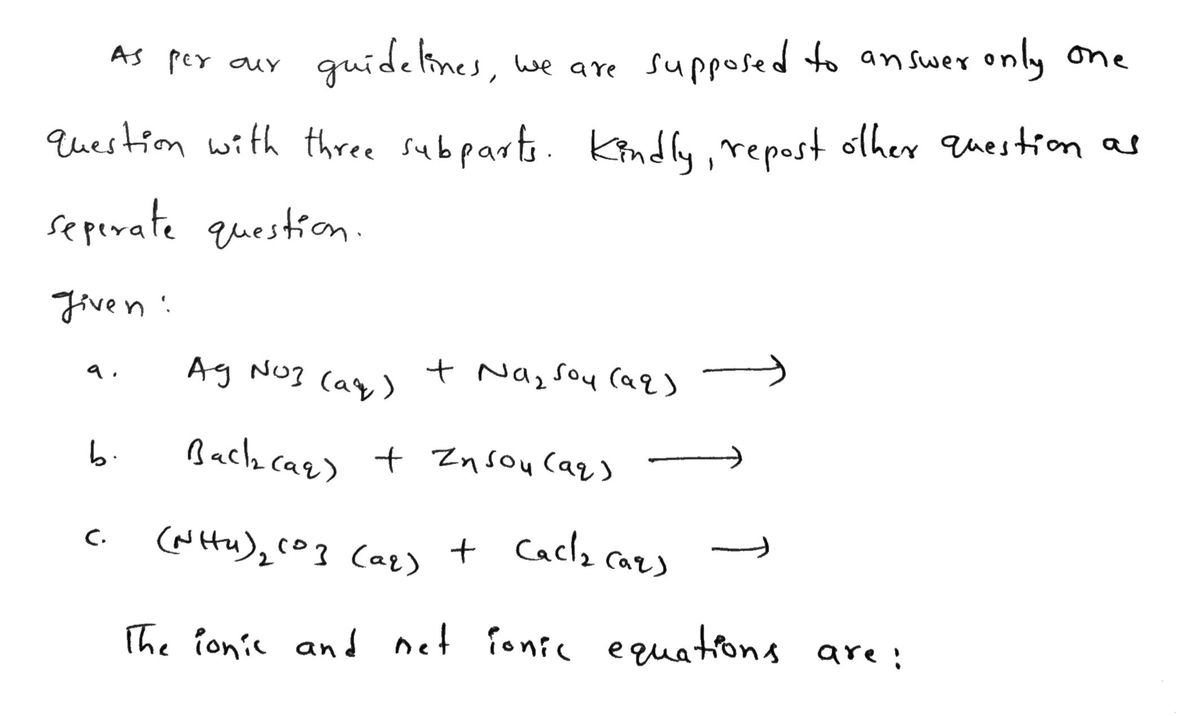 As per our guidelines, we are supposed to answer only one
question with three subparts. Kindly, repost other question as
seperate question.
Given:
a. AgNO3 (aq) + Na2SO4 (aq) →
b. BaCl2 (aq) + ZnSO4 (aq) →
c. (NH4)2CO3 (aq) + CaCl2 (aq) →
The ionic and net ionic equations are: